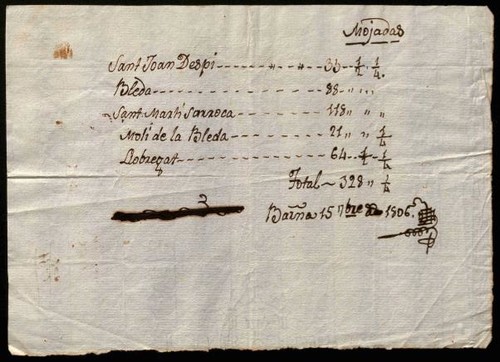 Mojadas
Sant Joan Despi - - - - - " - " - 33 - 1/2 - 1/4.
Bleda - - - - - - - - - - - - - 88 " " "
Sant Martí Sarroca - - - - - - - 118 " " "
Molí de la Bleda - - - - - - - 21 " " 1/4
Lobregat - - - - - - - - - - - 64 - 1/2 - 1/4
Total ~ 328 " 1/4
Barña 15 7bre de 1806.